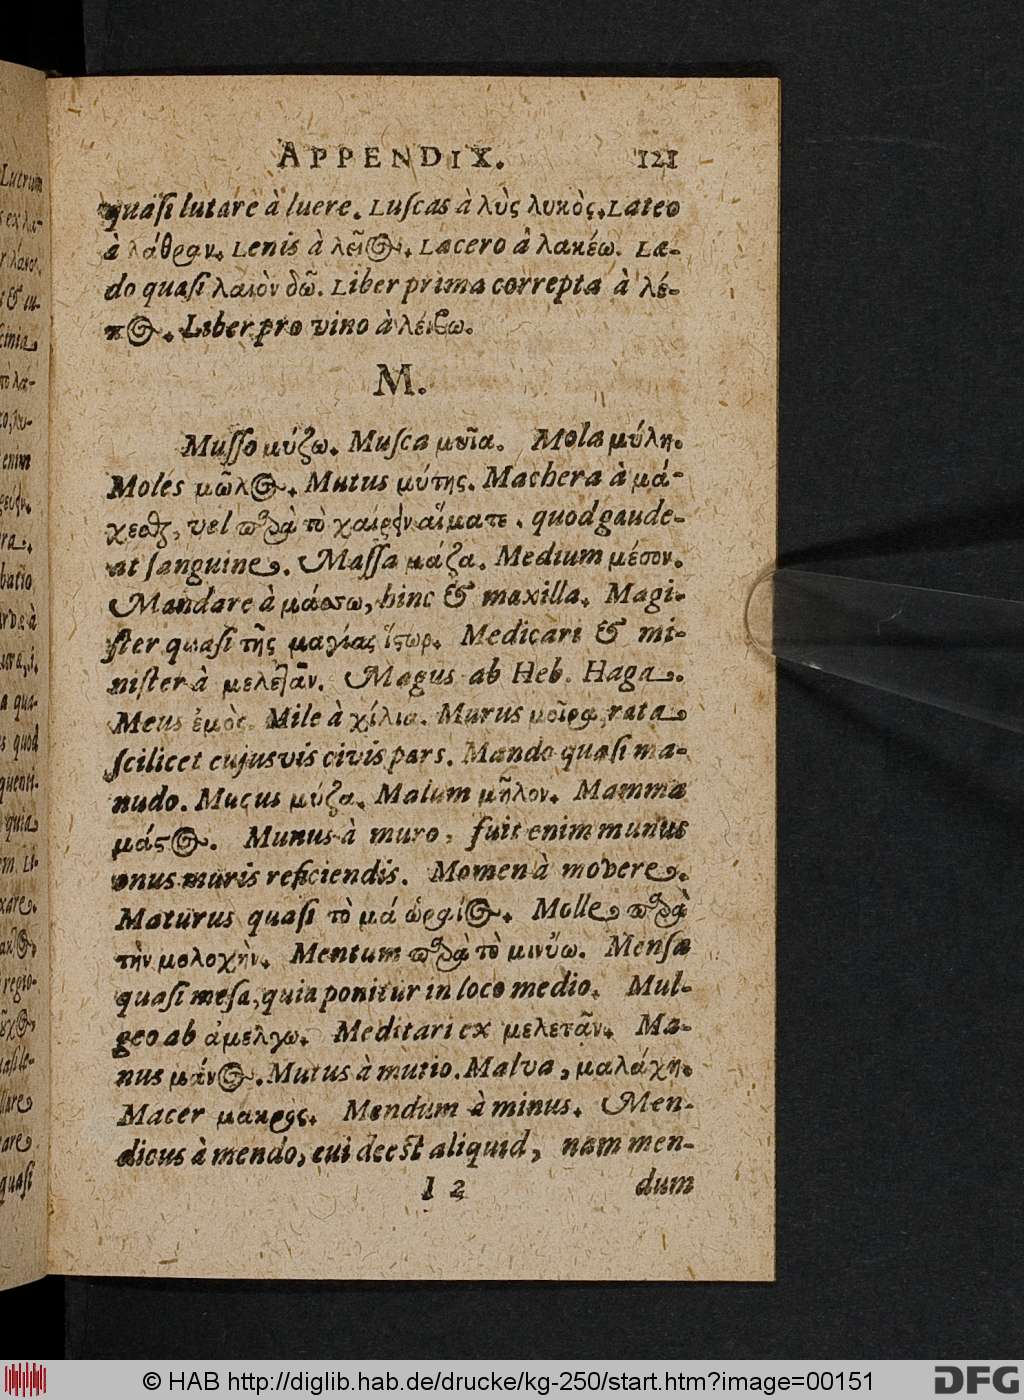 APPENDIX. 121
quaſi lutare à luere. Luſcas à λὺς λυκὸς. Lateo
à λάθραν. Lenis à λεῖος. Lacero à λακέω. Læ-
do quaſi λαιὸν δῶ. Liber prima correpta à λέ-
πος. Liber pro vino à λείβω.
M.
Muſſo μύζω. Muſca μυῖα. Mola μύλη.
Moles μῶλος. Mutus μύτης. Machera à μά-
χεσθαι, vel παρὰ τὸ χαίρειν αἵματι. quod gaude-
at ſanguine. Maſſa μάζα. Medium μέσον.
Mandare à μάσσω, hinc & maxilla. Magi-
ſter quaſi τῆς μαγίας ἵστωρ. Medicari & mi-
niſter à μελετᾶν. Magus ab Heb. Haga.
Meus ἐμὸς. Mile à χίλια. Murus μοῖρα, rata
ſcilicet cujusvis civis pars. Mando quaſi ma-
nudo. Mucus μύζα. Malum μῆλον. Mamma
μάστος. Munus à muro, fuit enim munus
onus muris reficiendis. Momen à movere.
Maturus quaſi τὸ μά ὡραίος. Molle παρὰ
τὴν μολοχὴν. Mentum παρὰ τὸ μινύω. Menſa
quaſi meſa, quia ponitur in loco medio. Mul-
geo ab ἀμελγω. Meditari ex μελετᾶν. Ma-
nus μάνος. Mutus à mutio. Malva, μαλάχη.
Macer μακρὸς. Mendum à minus. Men-
dicus à mendo, cui deest aliquid, nam men-
I 2 dum
© HAB http://diglib.hab.de/drucke/kg-250/start.htm?image=00151
DFG